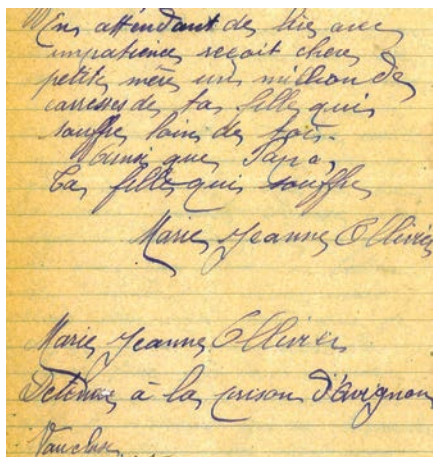 En attendant de lire avec
impatience reçoit chere
petite mère un million de
caresses de ta fille qui
souffre loin de toi.
Ainsi que Papa,
Ta fille qui souffre
Marie Jeanne Ollivier
Marie Jeanne Ollivier
Détenue à la prison d'Avignon
Vaucluse